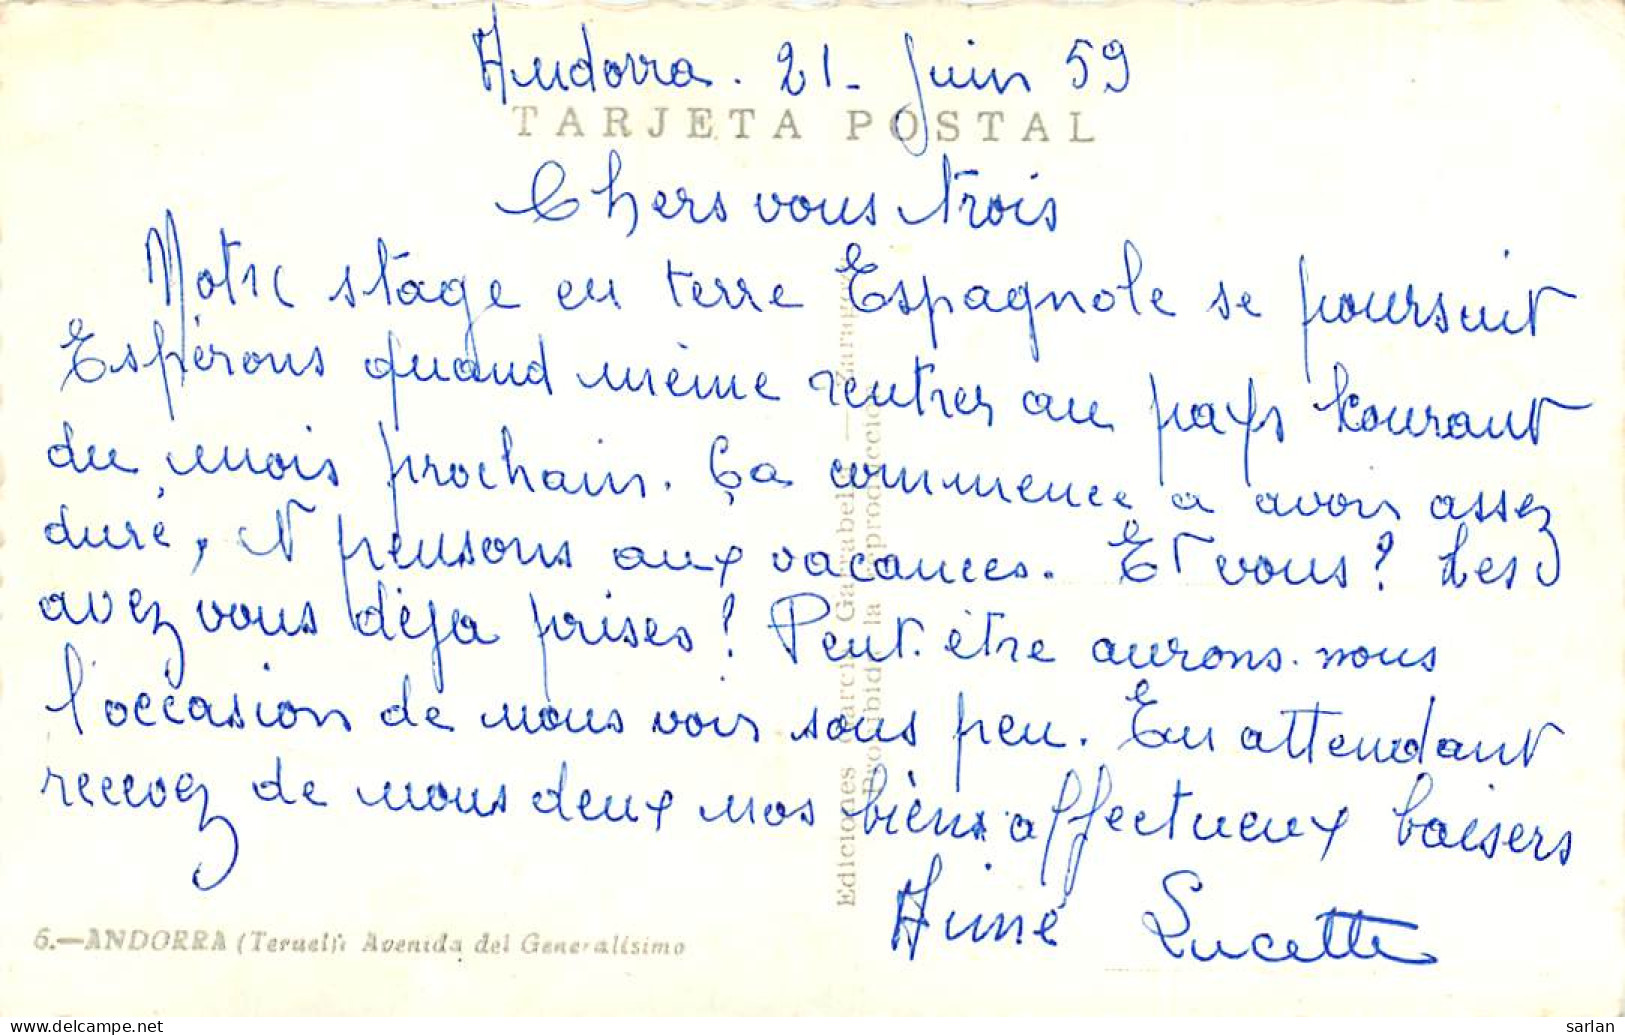 Andorra. 21. Juin 59
TARJETA POSTAL
Chers vous trois
Notre stage en terre Espagnole se poursuit
Espérons quand même rentrer au pays courant
du mois prochain. Ça commence a avoir assez
duré, et pensons aux vacances. Et vous? Les
avez vous déja prises? Peut. être aurons. nous
l'occasion de nous voir sous peu. En attendant
recevez de nous deux nos biens affectueux baisers
Aimé Lucette
6.—ANDORRA (Teruel): Avenida del Generalísimo
Ediciones García Garrabella — Zaragoza
Prohibida la reproducción
www.delcampe.net
sarlan